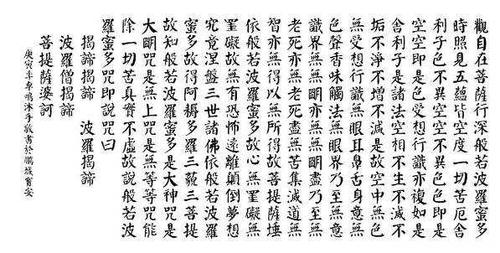 觀自在菩薩行深般若波羅蜜多
時照見五蘊皆空度一切苦厄舍
利子色不異空空不異色色即是
空空即是色受想行識亦複如是
舍利子是諸法空相不生不滅不
垢不淨不增不減是故空中無色
無受想行識無眼耳鼻舌身意無
色聲香味觸法無眼界乃至無意
識界無無明亦無無明盡乃至無
老死亦無老死盡無苦集滅道無
智亦無得以無所得故菩提薩埵
依般若波羅蜜多故心無罣礙無
罣礙故無有恐怖遠離顛倒夢想
究竟涅盤三世諸佛依般若波羅
蜜多故得阿耨多羅三藐三菩提
故知般若波羅蜜多是大神咒是
大明咒是無上咒是無等等咒能
除一切苦真實不虛故說般若波
羅蜜多咒即說咒曰
揭諦揭諦 波羅揭諦
波羅僧揭諦
菩提薩婆訶
庚寅年 鳴沐手敬書於鵬城寶安